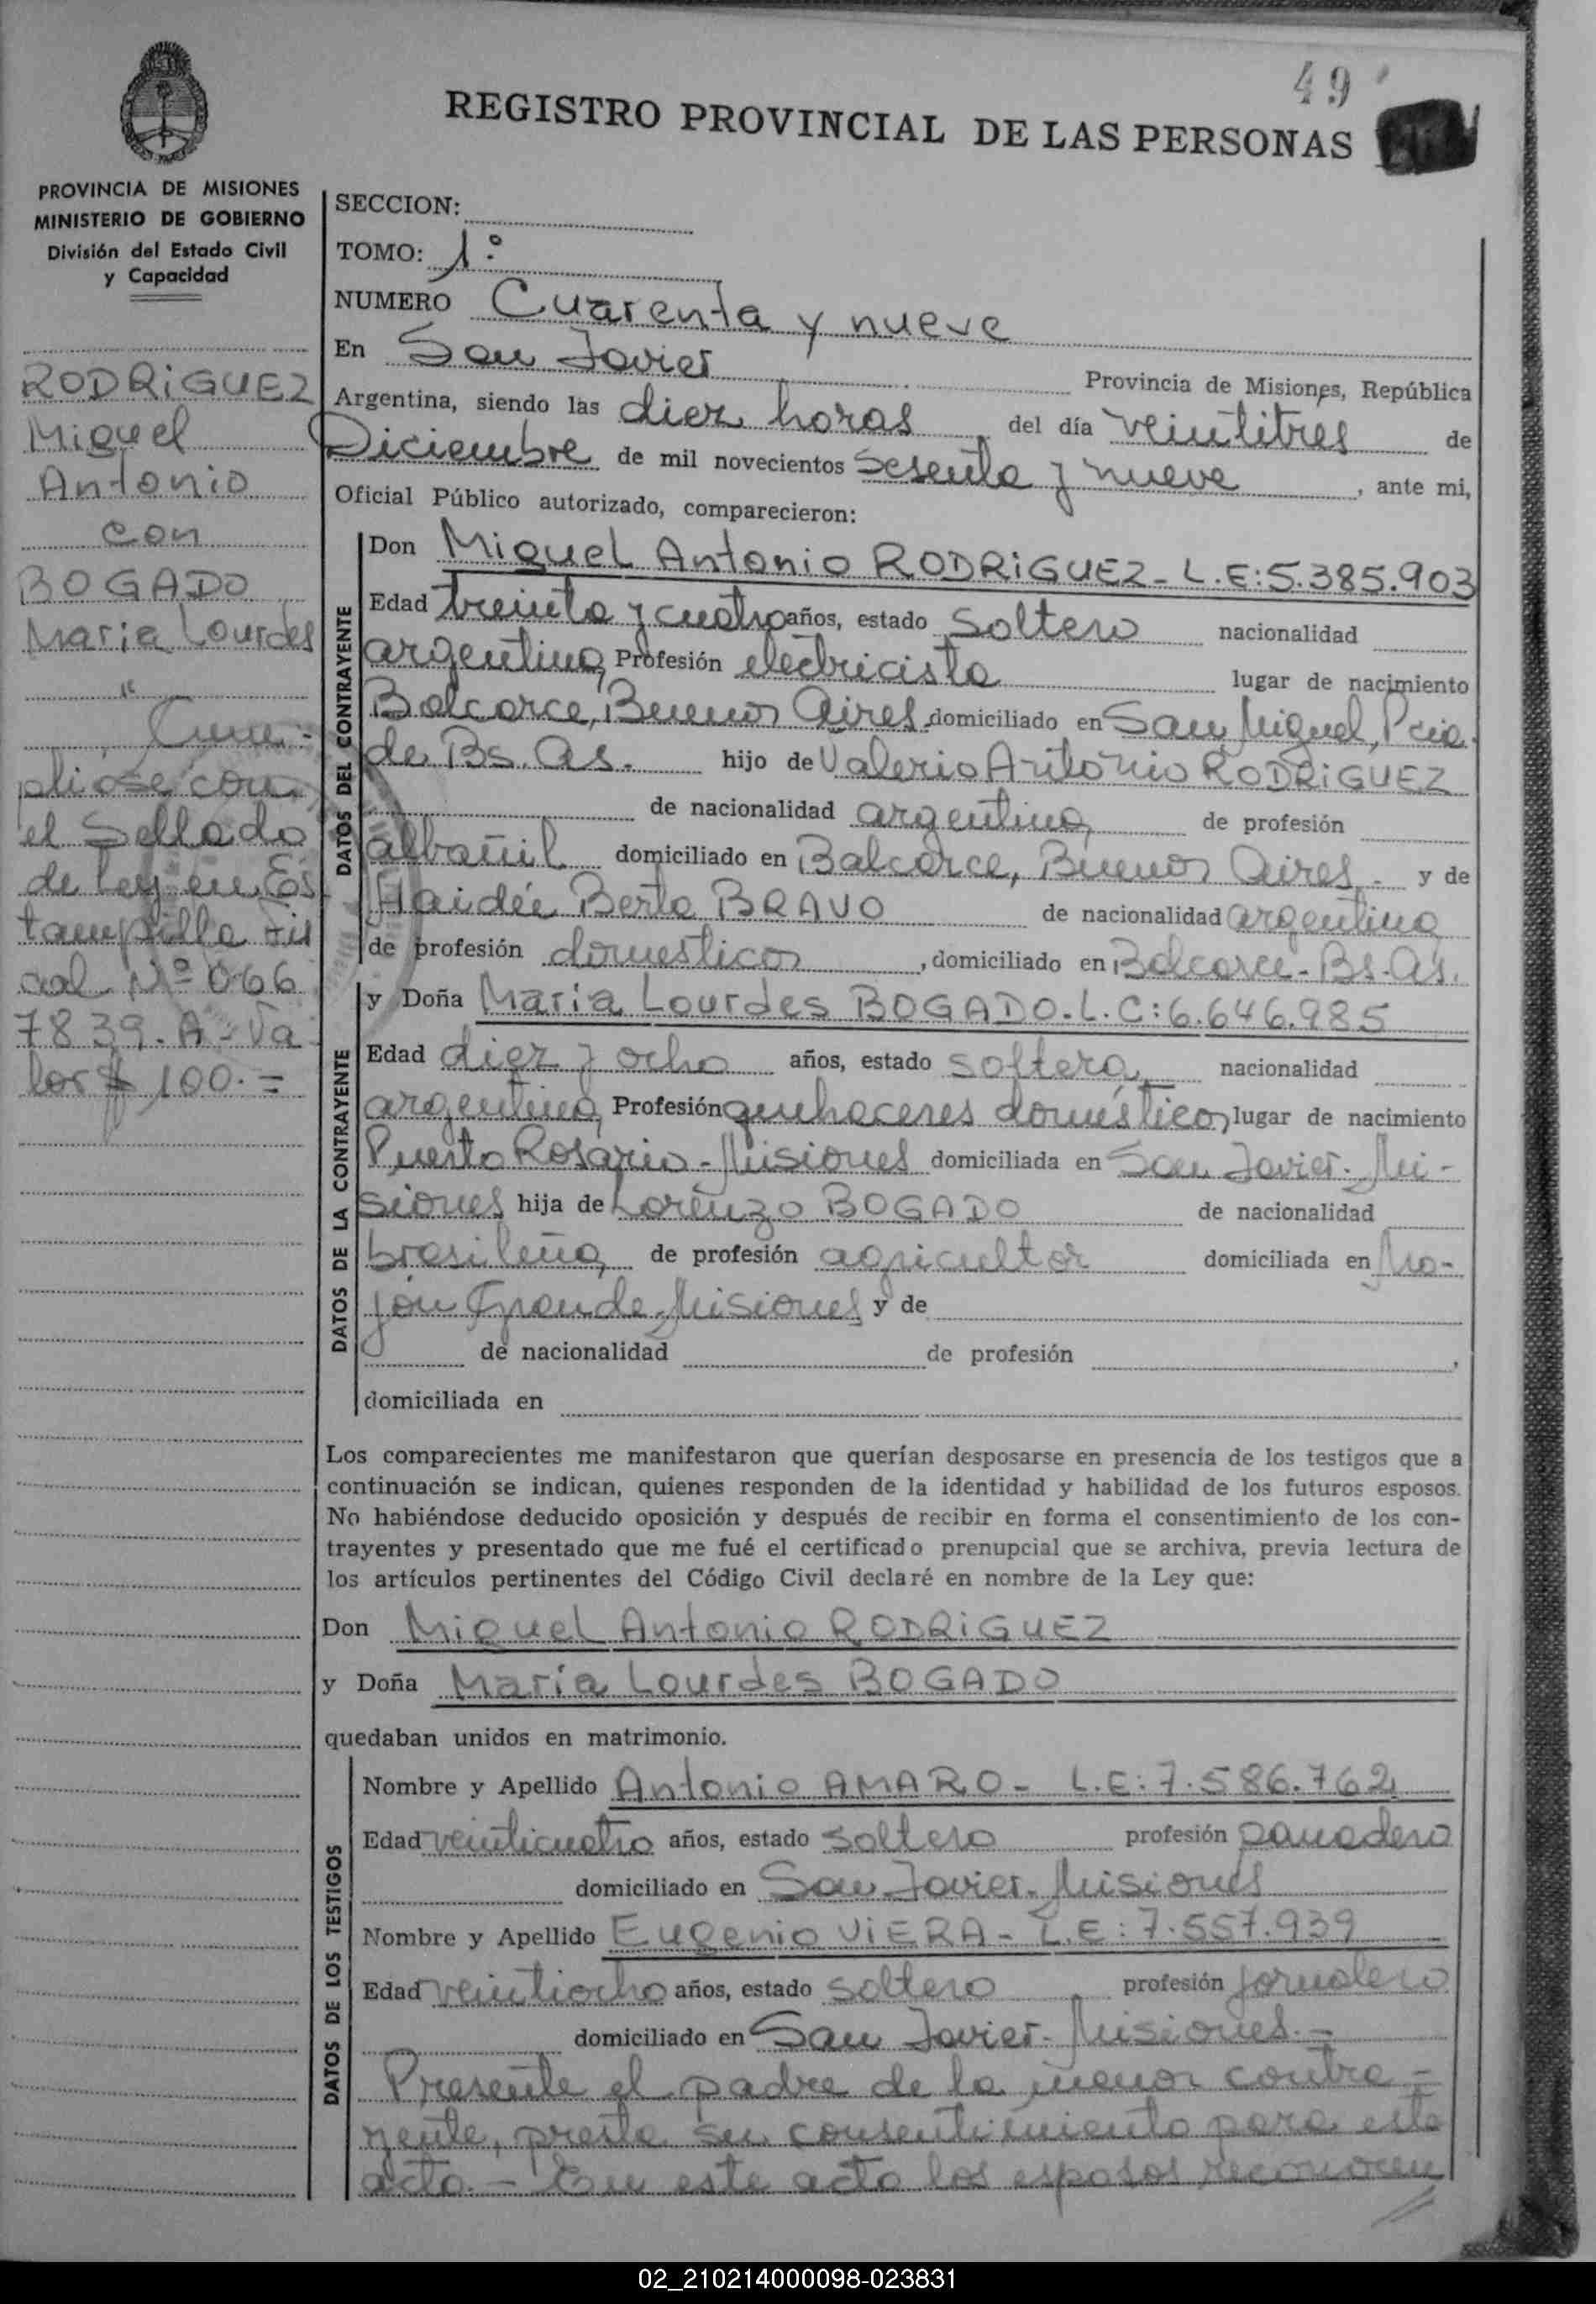 49
REGISTRO PROVINCIAL DE LAS PERSONAS
PROVINCIA DE MISIONES
MINISTERIO DE GOBIERNO
División del Estado Civil
y Capacidad
RODRIGUEZ
Miguel
Antonio
con
BOGADO
Maria Lourdes
"
Cum-
plióse con
el Sellado
de Ley en Es
tampilla Fis
cal Nº 066
7839. A - Va
lor $ 100.=
SECCION:
TOMO: 1º
NUMERO Cuarenta y nueve
En San Javier Provincia de Misiones, República
Argentina, siendo las diez horas del día veintitres de
Diciembre de mil novecientos sesenta y nueve, ante mi,
Oficial Público autorizado, comparecieron:
DATOS DEL CONTRAYENTE
Don Miguel Antonio RODRIGUEZ - L.E: 5.385.903
Edad treinta y cuatro años, estado soltero nacionalidad
argentina Profesión electricista lugar de nacimiento
Balcarce, Buenos Aires domiciliado en San Miguel, Pcia.
de Bs. As. hijo de Valerio Antonio RODRIGUEZ
de nacionalidad argentina de profesión
albañil domiciliado en Balcarce, Buenos Aires.- y de
Haidée Berta BRAVO de nacionalidad argentina
de profesión domesticos, domiciliado en Balcarce - Bs. As.
DATOS DE LA CONTRAYENTE
y Doña Maria Lourdes BOGADO. L.C: 6.646.985
Edad diez y ocho años, estado soltera nacionalidad
argentina Profesión quehaceres domésticos lugar de nacimiento
Puerto Rosario - Misiones domiciliada en San Javier - Mi-
siones hija de Lorenzo BOGADO de nacionalidad
brasileña de profesión agricultor domiciliada en Mo-
jón Grande - Misiones y de
de nacionalidad de profesión ,
domiciliada en
Los comparecientes me manifestaron que querían desposarse en presencia de los testigos que a
continuación se indican, quienes responden de la identidad y habilidad de los futuros esposos.
No habiéndose deducido oposición y después de recibir en forma el consentimiento de los con-
trayentes y presentado que me fué el certificado prenupcial que se archiva, previa lectura de
los artículos pertinentes del Código Civil declaré en nombre de la Ley que:
Don Miguel Antonio RODRIGUEZ
y Doña María Lourdes BOGADO
quedaban unidos en matrimonio.
DATOS DE LOS TESTIGOS
Nombre y Apellido Antonio AMARO - L.E: 7.586.762
Edad veinticuatro años, estado soltero profesión panadero
domiciliado en San Javier. Misiones
Nombre y Apellido Eugenio VIERA - L.E: 7.557.939
Edad veintiocho años, estado soltero profesión jornalero
domiciliado en San Javier - Misiones. -
Presente el padre de la menor contra-
yente, presta su consentimiento para este
acto. - En este acto los esposos reconocen
02_210214000098-023831